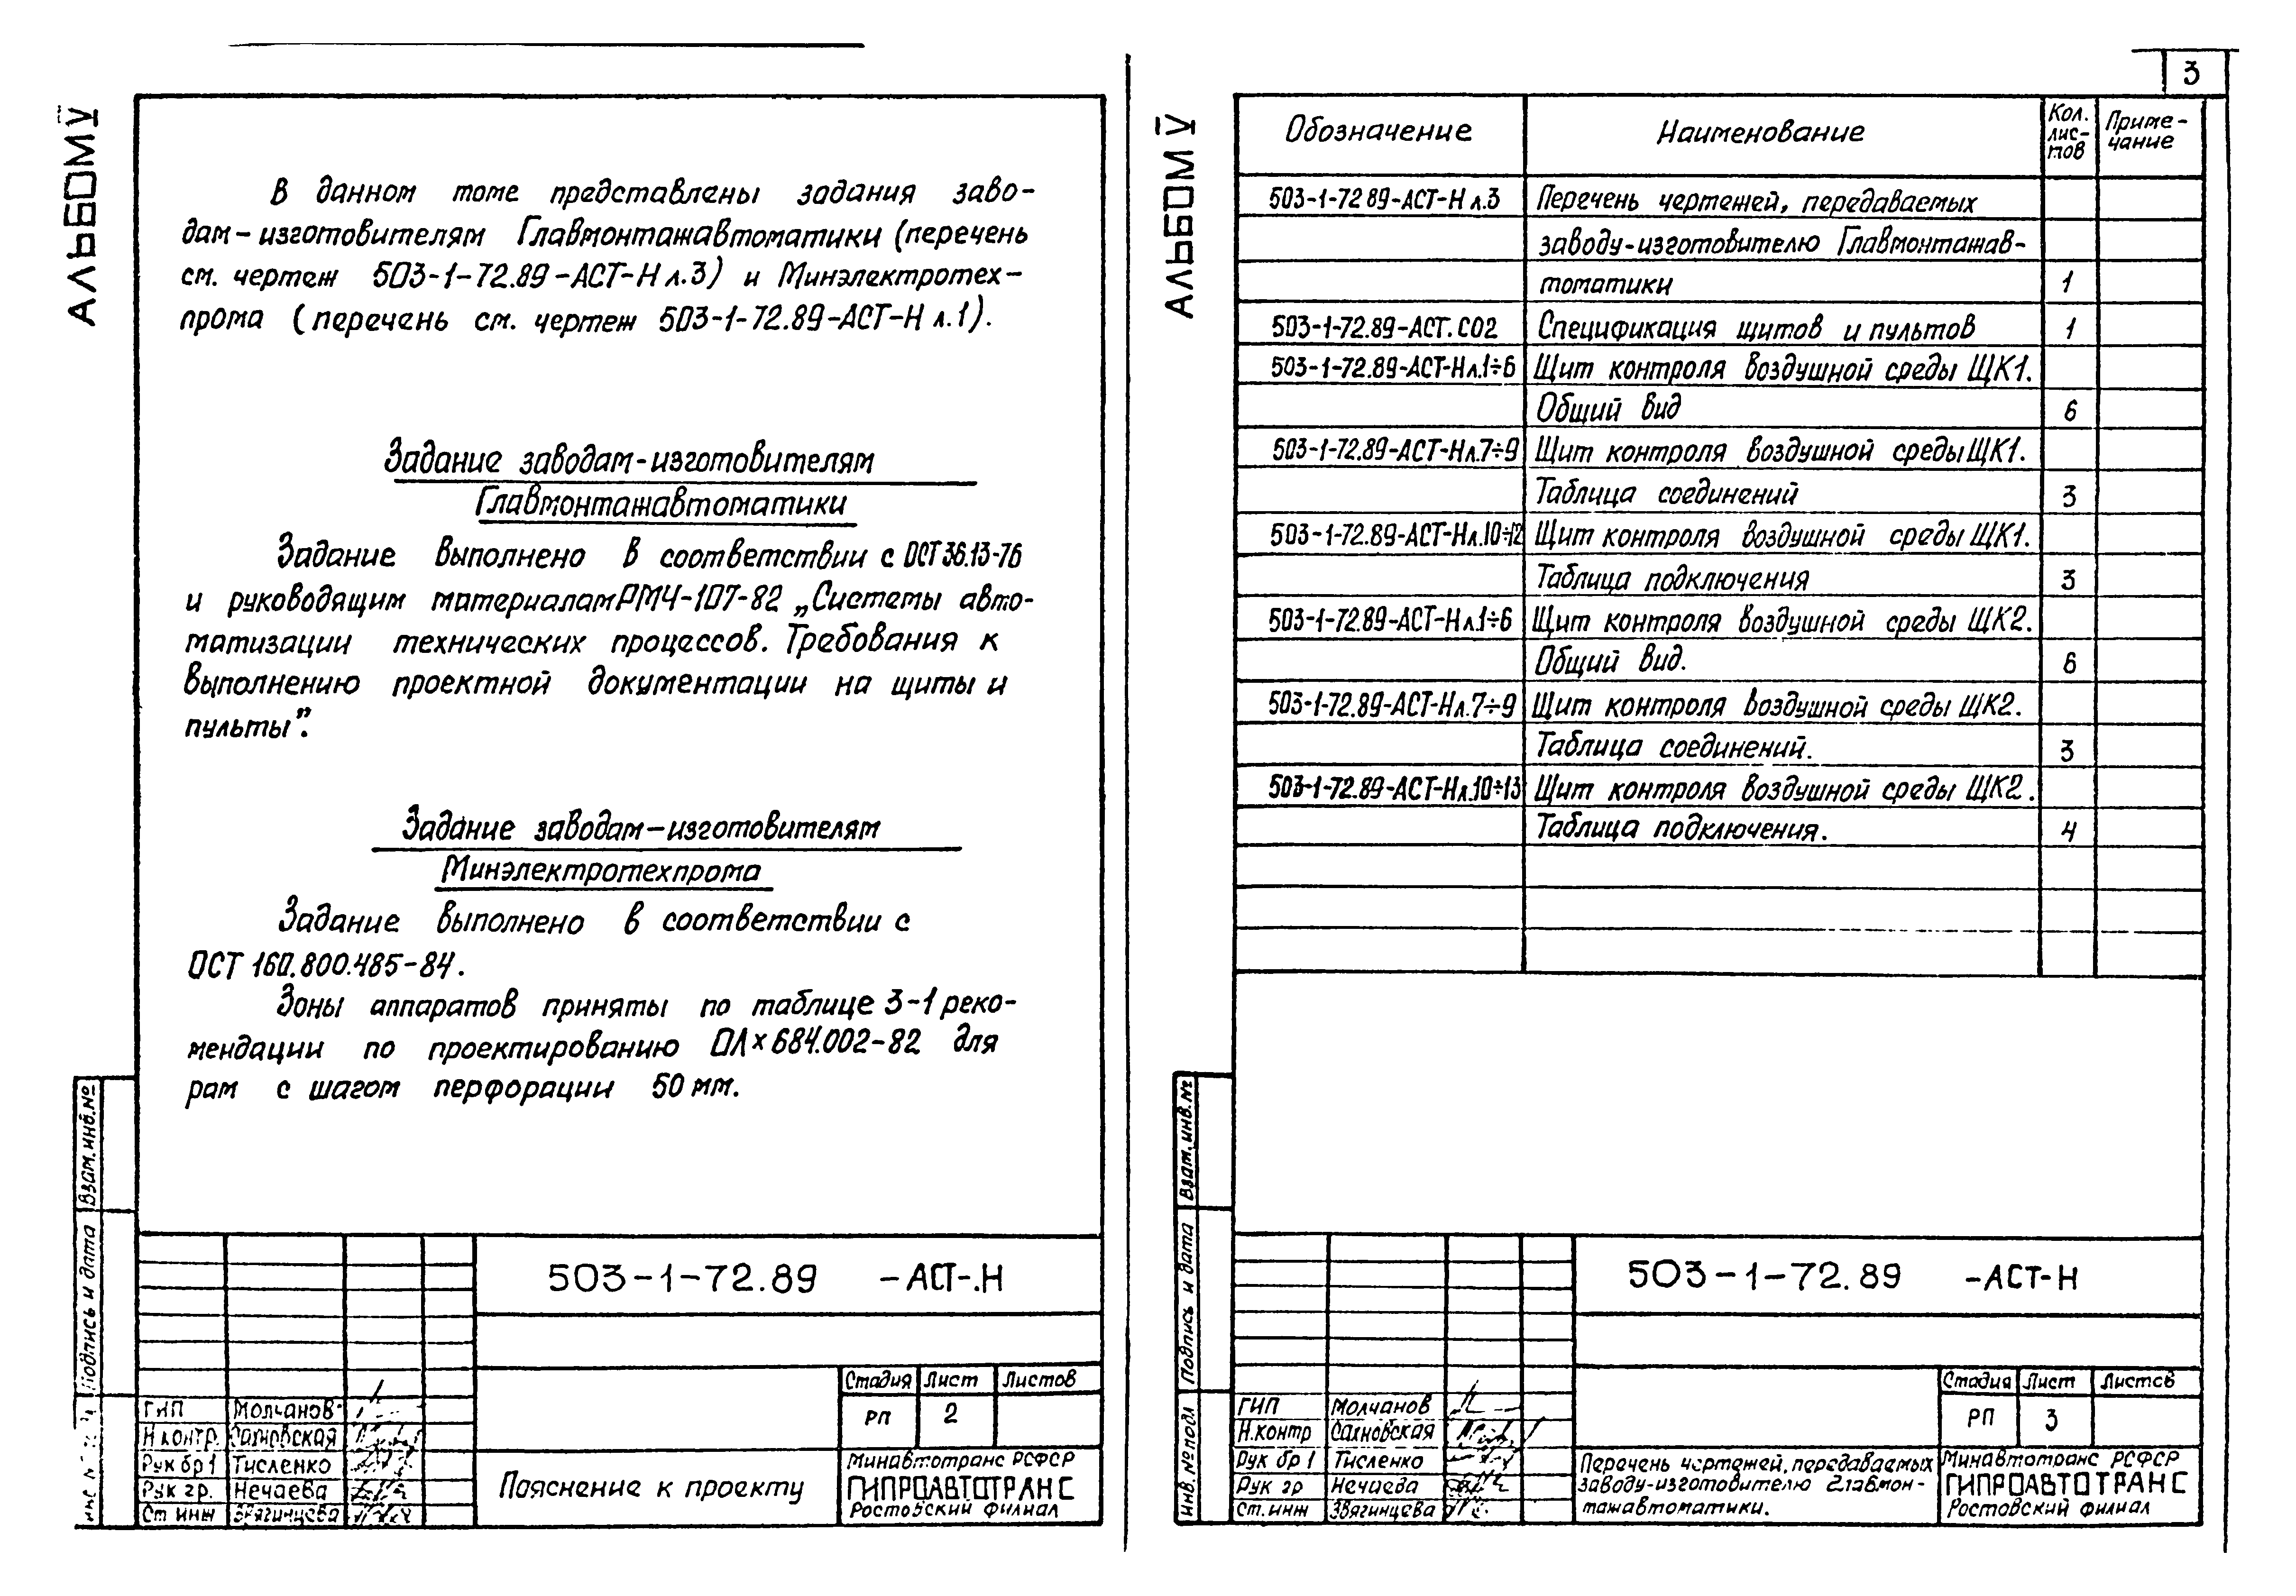 АЛЬБОМ V
В данном томе представлены задания заво-
дам-изготовителям Главмонтажавтоматики (перечень
см. чертеж 503-1-72.89-АСТ-Н л.3) и Минэлектротех-
прома (перечень см. чертеж 503-1-72.89-АСТ-Н л.1).
Задание заводам-изготовителям
Главмонтажавтоматики
Задание выполнено в соответствии с ОСТ 36.13-76
и руководящим материалам РМ4-107-82 „Системы авто-
матизации технических процессов. Требования к
выполнению проектной документации на щиты и
пульты".
Задание заводам-изготовителям
Минэлектротехпрома
Задание выполнено в соответствии с
ОСТ 160.800.485-84.
Зоны аппаратов приняты по таблице 3-1 реко-
мендации по проектированию ОЛх684.002-82 для
рам с шагом перфорации 50 мм.
Взам. инв. №
Подпись и дата
503-1-72.89 -АСТ-.Н
Стадия Лист Листов
РП 2
ГИП Молчанов
Н.контр. Сахновская
Рук бр 1 Тисленко
Рук гр. Нечаева
Ст инж Звягинцева
Пояснение к проекту
Минавтотранс РСФСР
ГИПРОАВТОТРАНС
Ростовский филиал
3
АЛЬБОМ V
Обозначение Наименование Кол. лис-тов Приме-чание
503-1-72 89-АСТ-Н л.3 Перечень чертежей, передаваемых
заводу-изготовителю Главмонтажав-
томатики 1
503-1-72.89-АСТ.СО2 Спецификация щитов и пультов 1
503-1-72.89-АСТ-Н л.1÷6 Щит контроля воздушной среды ЩК1.
Общий вид 6
503-1-72.89-АСТ-Н л.7÷9 Щит контроля воздушной среды ЩК1.
Таблица соединений 3
503-1-72.89-АСТ-Н л.10÷12 Щит контроля воздушной среды ЩК1.
Таблица подключения 3
503-1-72.89-АСТ-Н л.1÷6 Щит контроля воздушной среды ЩК2.
Общий вид. 6
503-1-72.89-АСТ-Н л.7÷9 Щит контроля воздушной среды ЩК2.
Таблица соединений. 3
503-1-72.89-АСТ-Н л.10÷13 Щит контроля воздушной среды ЩК2.
Таблица подключения. 4
Взам. инв. №
Подпись и дата
Инв. № подл
503-1-72.89 -АСТ-Н
Стадия Лист Листов
РП 3
ГИП Молчанов
Н.контр Сахновская
Рук бр 1 Тисленко
Рук гр Нечаева
Ст. инж Звягинцева
Перечень чертежей, передаваемых
заводу-изготовителю Главмон-
тажавтоматики.
Минавтотранс РСФСР
ГИПРОАВТОТРАНС
Ростовский филиал